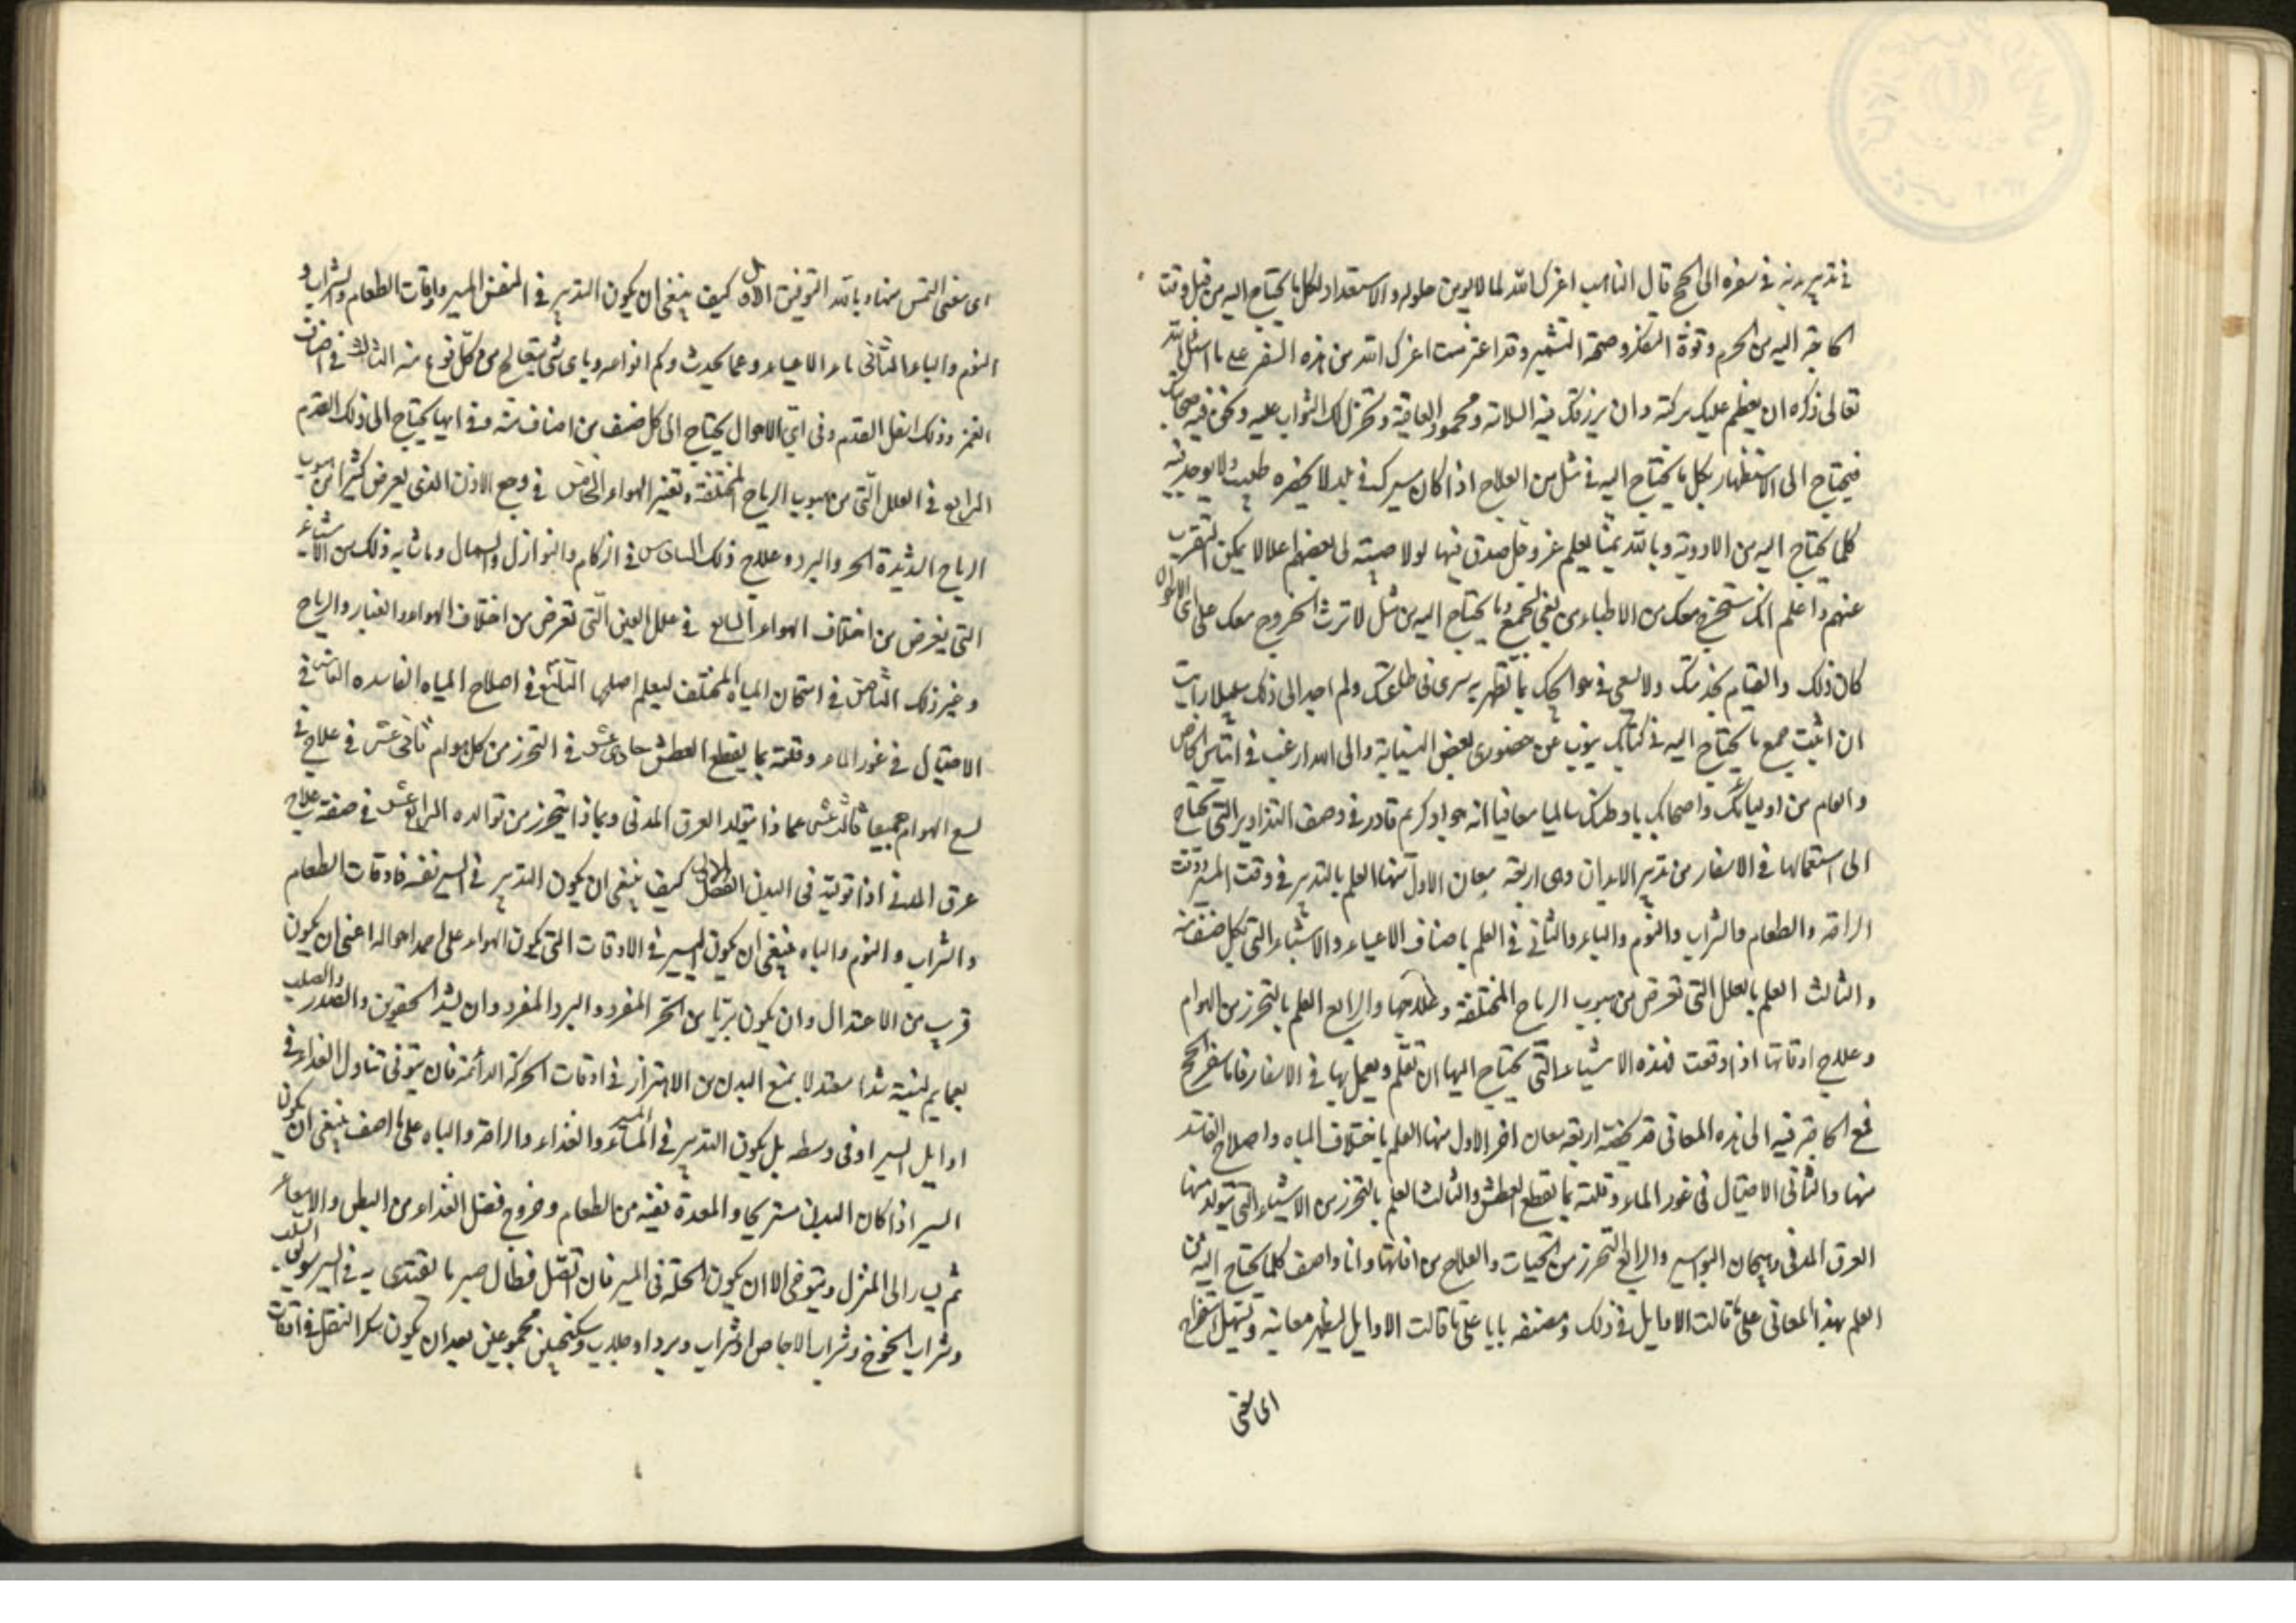 في تدبير بدنه في سفره الى الحج قال الناسب اعزك الله لما لا يومن حلوله والاستعداد لكل ما يحتاج اليه من قبل وقت
الحاجة اليه من الحزم وقوة الفكر وصحة التمييز وقد اعتزمت اعزك الله من هذه السفر على ما اسئل الله
تعالى ذكره ان يعظم عليك بركته وان يرزقك فيه السلامة ومحمود العافية ويجزل لك الثواب عليه
فيحتاج الى الاستظهار بكل ما يحتاج اليه في مثل من العلاج اذا كان سيرك في بلد لا يحضره طبيب ولا يوجد فيه
كلما يحتاج اليه من الادوية وبالله يمينا يعلم عز وجل صدقي فيها لولا صبية لي بعضهم اعلالا يمكن التغرب
عنهم واعلم انك ستخرج معك من الاطباء من يفي بجميع ما يحتاج اليه من مثل لاثرت الخروج معك على اى الاحوال
كان ذلك والقيام بخدمتك والسعى في حوايجك بما تظهر به سرى في طاعتك ولم اجد الى ذلك سبيلا رايت
ان اثبت جميع ما يحتاج اليه في كتاب ينوب عن حضورى بعض النيابة والى الله ارغب في ايناس الخاص
والعام من اوليائك واصحابك باوطنك سالما معافيا انه جواد كريم قادر في وصف التدابير التي يحتاج
الى استعمالها في الاسفار من تدبير الابدان وهى اربعة معان الاول منها العلم بالتدبير في وقت المسير ووقت
الراحة والطعام والشراب والنوم والباء والثاني في العلم باصناف الاعياء والاشياء التي لكل صنف منه
والثالث العلم بالعلل التي تعرض من هبوب الرياح المختلفة وعلاجها والرابع العلم بالتحرز من الهوام
وعلاج افاتها اذا وقعت فهذه الاشياء التي يحتاج اليها ان تعلم ويعمل بها في الاسفار فاما سفر الحج
فمع الحاجة فيه الى هذه المعاني قد يخصه اربعة معان اخر الاول منها العلم باختلاف المياه واصلاح الفاسد
منها والثاني الاحتيال في عوز الماء وقلته بما يقطع العطش والثالث العلم بالتحرز من الاشياء التي يتولد منها
العرق المدني وهيجان البواسير والرابع التحرز من الحيات والعلاج من افاتها وانا واصف كلما يحتاج اليه من
العلم بهذه المعاني على ما قالت الاوايل في ذلك ومصنفه بابا على ما قالت الاوايل ليظهر معانيه ويسهل استخراج
اى معنى
اى معنى التمس منها وبالله التوفيق الاول كيف ينبغي ان يكون التدبير في المسير واوقات الطعام والشراب و
النوم والباء الثاني ما الاعياء وعما يحدث وكم انواعه وباى شىء يعالج من كل نوع منه الثالث في اصناف
الغمز وذلك اسفل القدم وفي اى الاحوال يحتاج الى كل صنف من اصنافه منه وفي ايها يحتاج الى ذلك القدم
الرابع في العلل التي من هبوب الرياح المختلفة وتغير الهواء الخامس في وجع الاذن الذى يعرض كثيرا من هبوب
الرياح الشديدة الحر والبرد وعلاج ذلك السادس في الزكام والنوازل والسعال وما شابه ذلك من الاشياء
التي يعرض من اختلاف الهواء السابع في علل العين التي تعرض من اختلاف الهواء والغبار والرياح
وغير ذلك الثامن في امتحان المياه المختلفة ليعلم اصلحها التاسع في اصلاح المياه الفاسده العاشر في
الاحتيال في عوز الماء وقلته بما يقطع العطش حادى عشر في التحرز من كل هوام ثاني عشر في علاج في
لسع الهوام جميعا ثالث عشر عما ذا يتولد العرق المدني وبماذا يتحرز من توالده الرابع عشر في صفة علاج
عرق المدني اذا تولد في البدن الفصل الاول كيف ينبغي ان يكون التدبير في السير نفسه واوقات الطعام
والشراب والنوم والباه ينبغي ان يكون المسير في الاوقات التي يكون الهواء على احمد احواله اعني ان يكون
قريب من الاعتدال وان يكون بريا من الحر المفرد والبرد المفرد وان يشد الحقوين والصدر والصلب
بعمايم لينة شدا معتدلا يمنع البدن من الاهتزاز في اوقات الحركة الدائمة فان يتوقى تناول الغذاء في
اوايل السير او في وسطه بل يكون التدبير في المسير والغذاء والراحة والباه على ما اصف ينبغي ان يكون
السير اذا كان البدن مستريحا والمعدة نقية من الطعام وخروج فضل الغذاء من البطن والامعاء
ثم يسار الى المنزل ويتوخى الا ان يكون العلة في المسير فان اتصل فطال صير ما يغتدى به في السير سويق السلت
وشراب الخوخ وشراب الاجاص او شراب ورد او جلاب وسكنجبين مجموعين بعد ان يكون سكر التنقل في اوقات